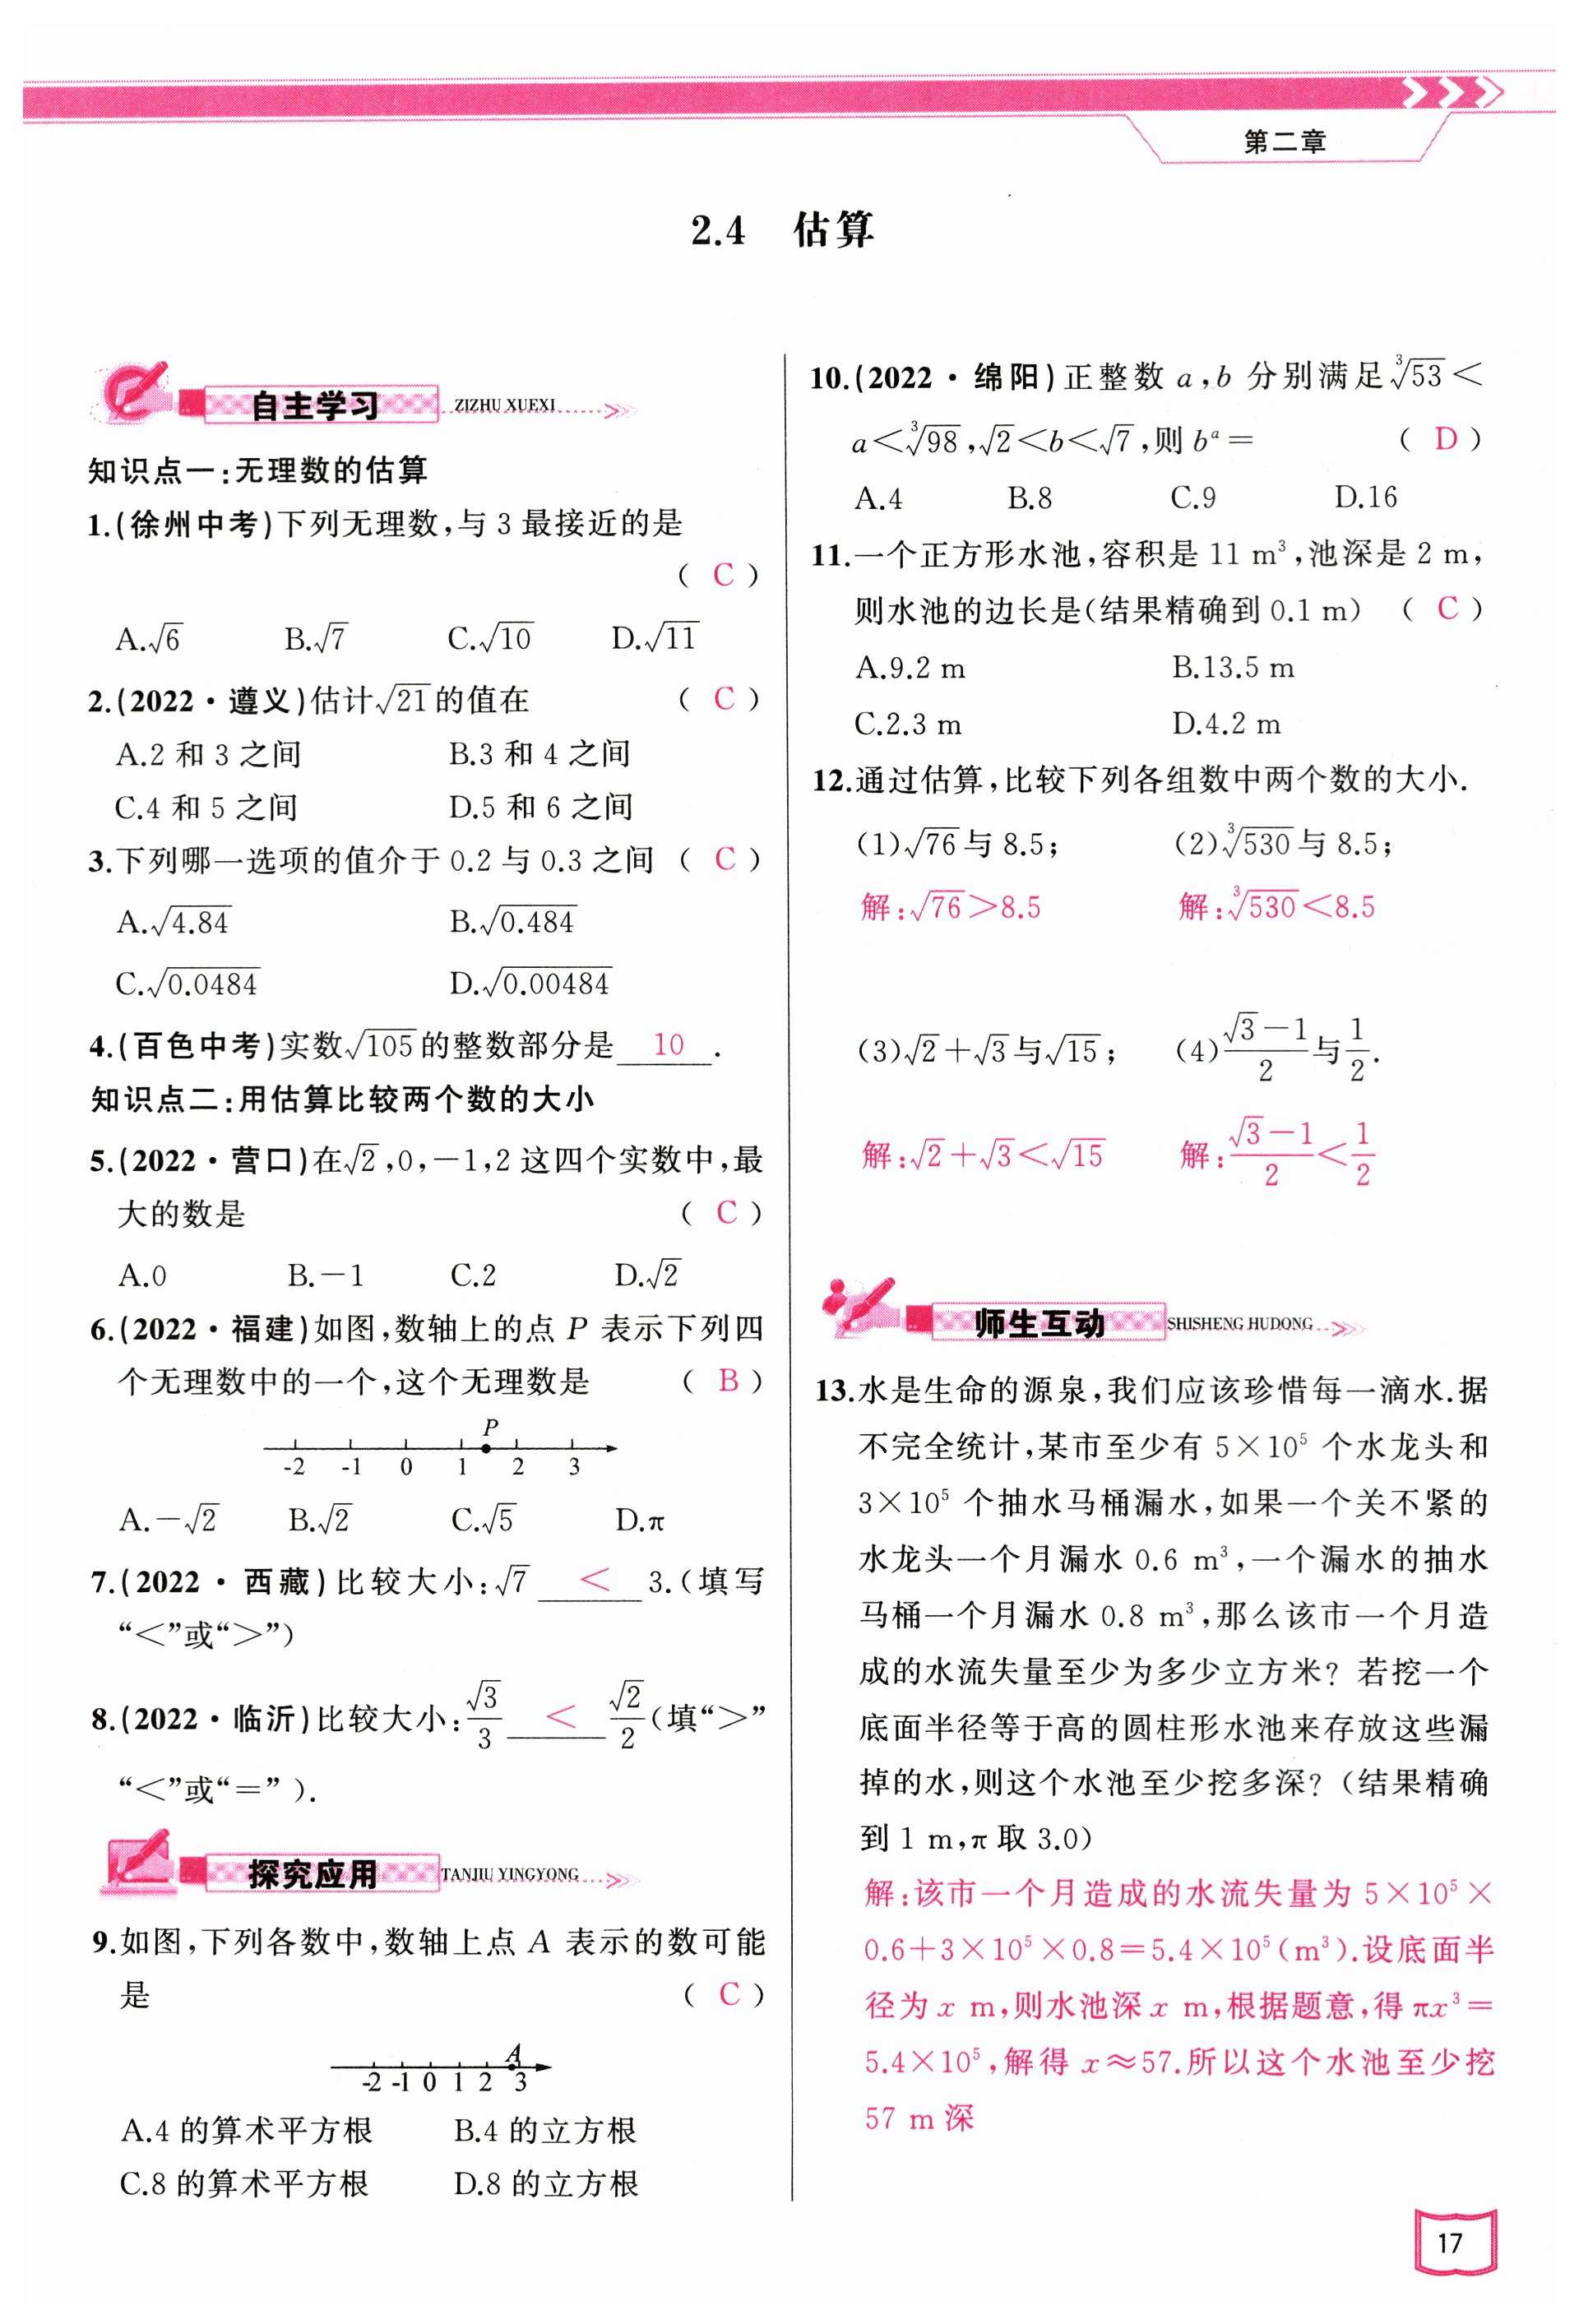 第二章
2.4 估算
自主学习 ZIZHU XUEXI
知识点一:无理数的估算
1.(徐州中考)下列无理数,与 3 最接近的是
( C )
A.√6 B.√7 C.√10 D.√11
2.(2022·遵义)估计√21的值在 ( C )
A.2 和 3 之间 B.3 和 4 之间
C.4 和 5 之间 D.5 和 6 之间
3.下列哪一选项的值介于 0.2 与 0.3 之间 ( C )
A.√4.84 B.√0.484
C.√0.0484 D.√0.00484
4.(百色中考)实数√105的整数部分是 10 .
知识点二:用估算比较两个数的大小
5.(2022·营口)在√2,0,-1,2 这四个实数中,最
大的数是 ( C )
A.0 B.-1 C.2 D.√2
6.(2022·福建)如图,数轴上的点 P 表示下列四
个无理数中的一个,这个无理数是 ( B )
P
-2 -1 0 1 2 3
A.-√2 B.√2 C.√5 D.π
7.(2022·西藏)比较大小:√7 < 3.(填写
“<”或“>”)
8.(2022·临沂)比较大小:√3/3 < √2/2(填“>”
“<”或“=”).
探究应用 TANJIU YINGYONG
9.如图,下列各数中,数轴上点 A 表示的数可能
是 ( C )
A
-2 -1 0 1 2 3
A.4 的算术平方根 B.4 的立方根
C.8 的算术平方根 D.8 的立方根
10.(2022·绵阳)正整数 a,b 分别满足∛53<
a<∛98,√2<b<√7,则 bᵃ= ( D )
A.4 B.8 C.9 D.16
11.一个正方形水池,容积是 11 m³,池深是 2 m,
则水池的边长是(结果精确到 0.1 m) ( C )
A.9.2 m B.13.5 m
C.2.3 m D.4.2 m
12.通过估算,比较下列各组数中两个数的大小.
(1)√76与 8.5; (2)∛530与 8.5;
解:√76>8.5 解:∛530<8.5
(3)√2+√3与√15; (4)(√3-1)/2与1/2.
解:√2+√3<√15 解:(√3-1)/2<1/2
师生互动 SHISHENG HUDONG
13.水是生命的源泉,我们应该珍惜每一滴水.据
不完全统计,某市至少有 5×10⁵ 个水龙头和
3×10⁵ 个抽水马桶漏水,如果一个关不紧的
水龙头一个月漏水 0.6 m³,一个漏水的抽水
马桶一个月漏水 0.8 m³,那么该市一个月造
成的水流失量至少为多少立方米? 若挖一个
底面半径等于高的圆柱形水池来存放这些漏
掉的水,则这个水池至少挖多深? (结果精确
到 1 m,π 取 3.0)
解:该市一个月造成的水流失量为 5×10⁵×
0.6+3×10⁵×0.8=5.4×10⁵(m³).设底面半
径为 x m,则水池深 x m,根据题意,得 πx³=
5.4×10⁵,解得 x≈57.所以这个水池至少挖
57 m 深
17